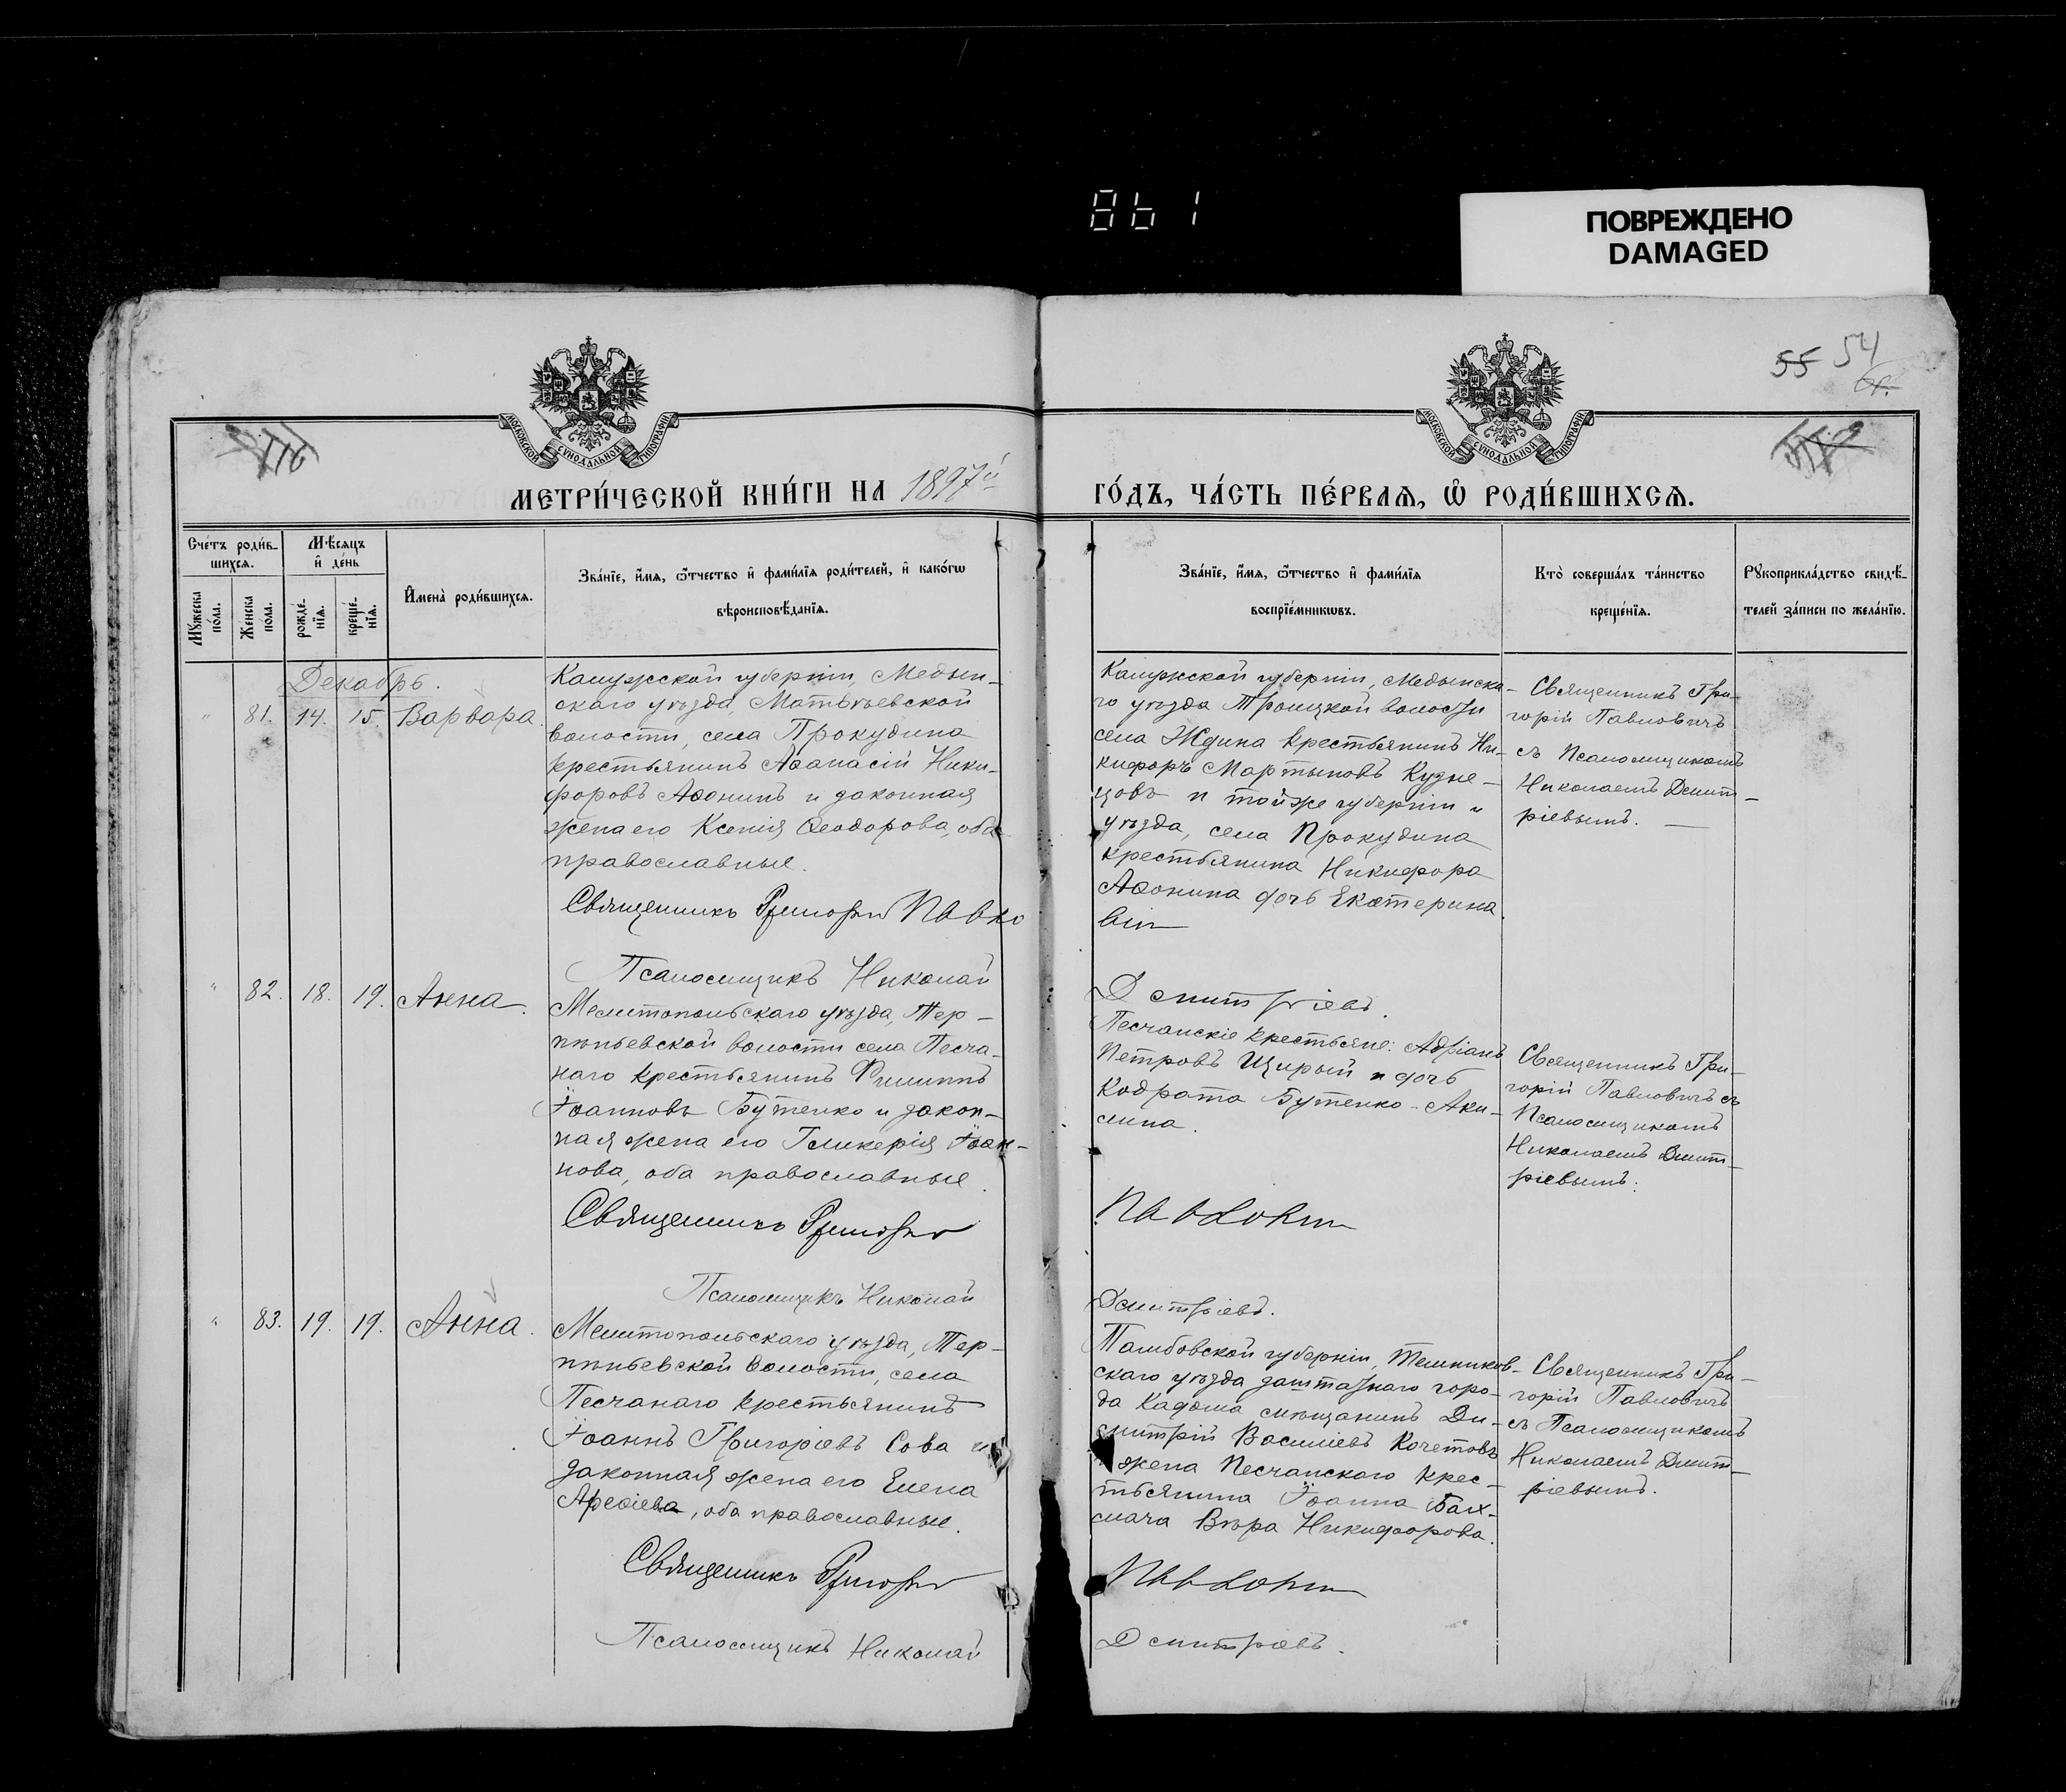 861
ПОВРЕЖДЕНО
DAMAGED
55 54
МОСКОВСКОЙ СѴНОДАЛЬНОЙ ТИПОГРАФІИ
МОСКОВСКОЙ СѴНОДАЛЬНОЙ ТИПОГРАФІИ
МЕТРИ́ЧЕСКОЙ КНИ́ГИ НА 1897й
ГО́ДЪ, ЧА́СТЬ ПЕ́РВАЯ, Ѿ РОДИ́ВШИХСЯ.
Сче́тъ роди́в-
шихся.
Мꙋжеска по́ла.
Же́нска по́ла.
Мѣ́сяцъ
и҆ де́нь
рожде́-
нїя.
креще́-
нїя.
И҆мена̀ роди́вшихся.
Зва́нїе, и҆́мя, ѻ҆́тчество и҆ фами́лїя роди́телей, и҆ како́гѡ
вѣроисповѣ́данїя.
Зва́нїе, и҆́мя, ѻ҆́тчество и҆ фами́лїя
воспрїе́мникѡвъ.
Кто̀ соверша́лъ та́инство
креще́нїя.
Рꙋкоприкла́дство свидѣ́-
телей за́писи по жела́нїю.
Декабрь.
" 81. 14. 15. Варвара.
Калужской губерніи, Медын-
скаго уѣзда, Матвѣевской
волости, села Прокудина
крестьянинъ Аѳанасій Ники-
форовъ Аѳонинъ и законная
жена его Ксенія Ѳеодорова, оба
православные.
Священникъ Григорій Павло
Калужской губерніи, Медынска-
го уѣзда Троицкой волости
села Ждина крестьянинъ Ни-
кифоръ Мартыновъ Кузне-
цовъ и тойже губерніи и
уѣзда, села Прокудина
крестьянина Никифора
Аѳонина дочь Екатерина.
вич
Священникъ Гри-
горій Павловичъ
съ Псаломщикомъ
Николаемъ Дмит-
ріевымъ.
Псаломщикъ Николай
Дмитріевъ.
" 82. 18. 19. Анна.
Мелитопольскаго уѣзда, Тер-
пѣньевской волости села Песча-
наго крестьянинъ Филиппъ
Іоанновъ Бутенко и закон-
ная жена его Гликерія Іоан-
нова, оба православные.
Священникъ Григорій
Песчанскіе крестьяне: Адріанъ
Петровъ Щирый и дочь
Кодрата Бутенко - Аки-
лина.
Павлович
Священникъ Гри-
горій Павловичъ съ
Псаломщикомъ
Николаемъ Дмит-
ріевымъ.
Псаломщикъ Николай
Дмитріевъ.
" 83. 19. 19. Анна.
Мелитопольскаго уѣзда, Тер-
пѣньевской волости, села
Песчанаго крестьянинъ
Іоаннъ Григоріевъ Сова и
законная жена его Елена
Арефіева, оба православные.
Священникъ Григорій
Тамбовской губерніи, Темников-
скаго уѣзда заштатнаго горо-
да Кадома мѣщанинъ Ди-
митрій Василіевъ Кочетовъ
и жена Песчанскаго крес-
тьянина Іоанна Бах-
мача Вѣра Никифорова.
Павлович
Священникъ Гри-
горій Павловичъ
съ Псаломщикомъ
Николаемъ Дмит-
ріевымъ.
Псаломщикъ Николай
Дмитріевъ.